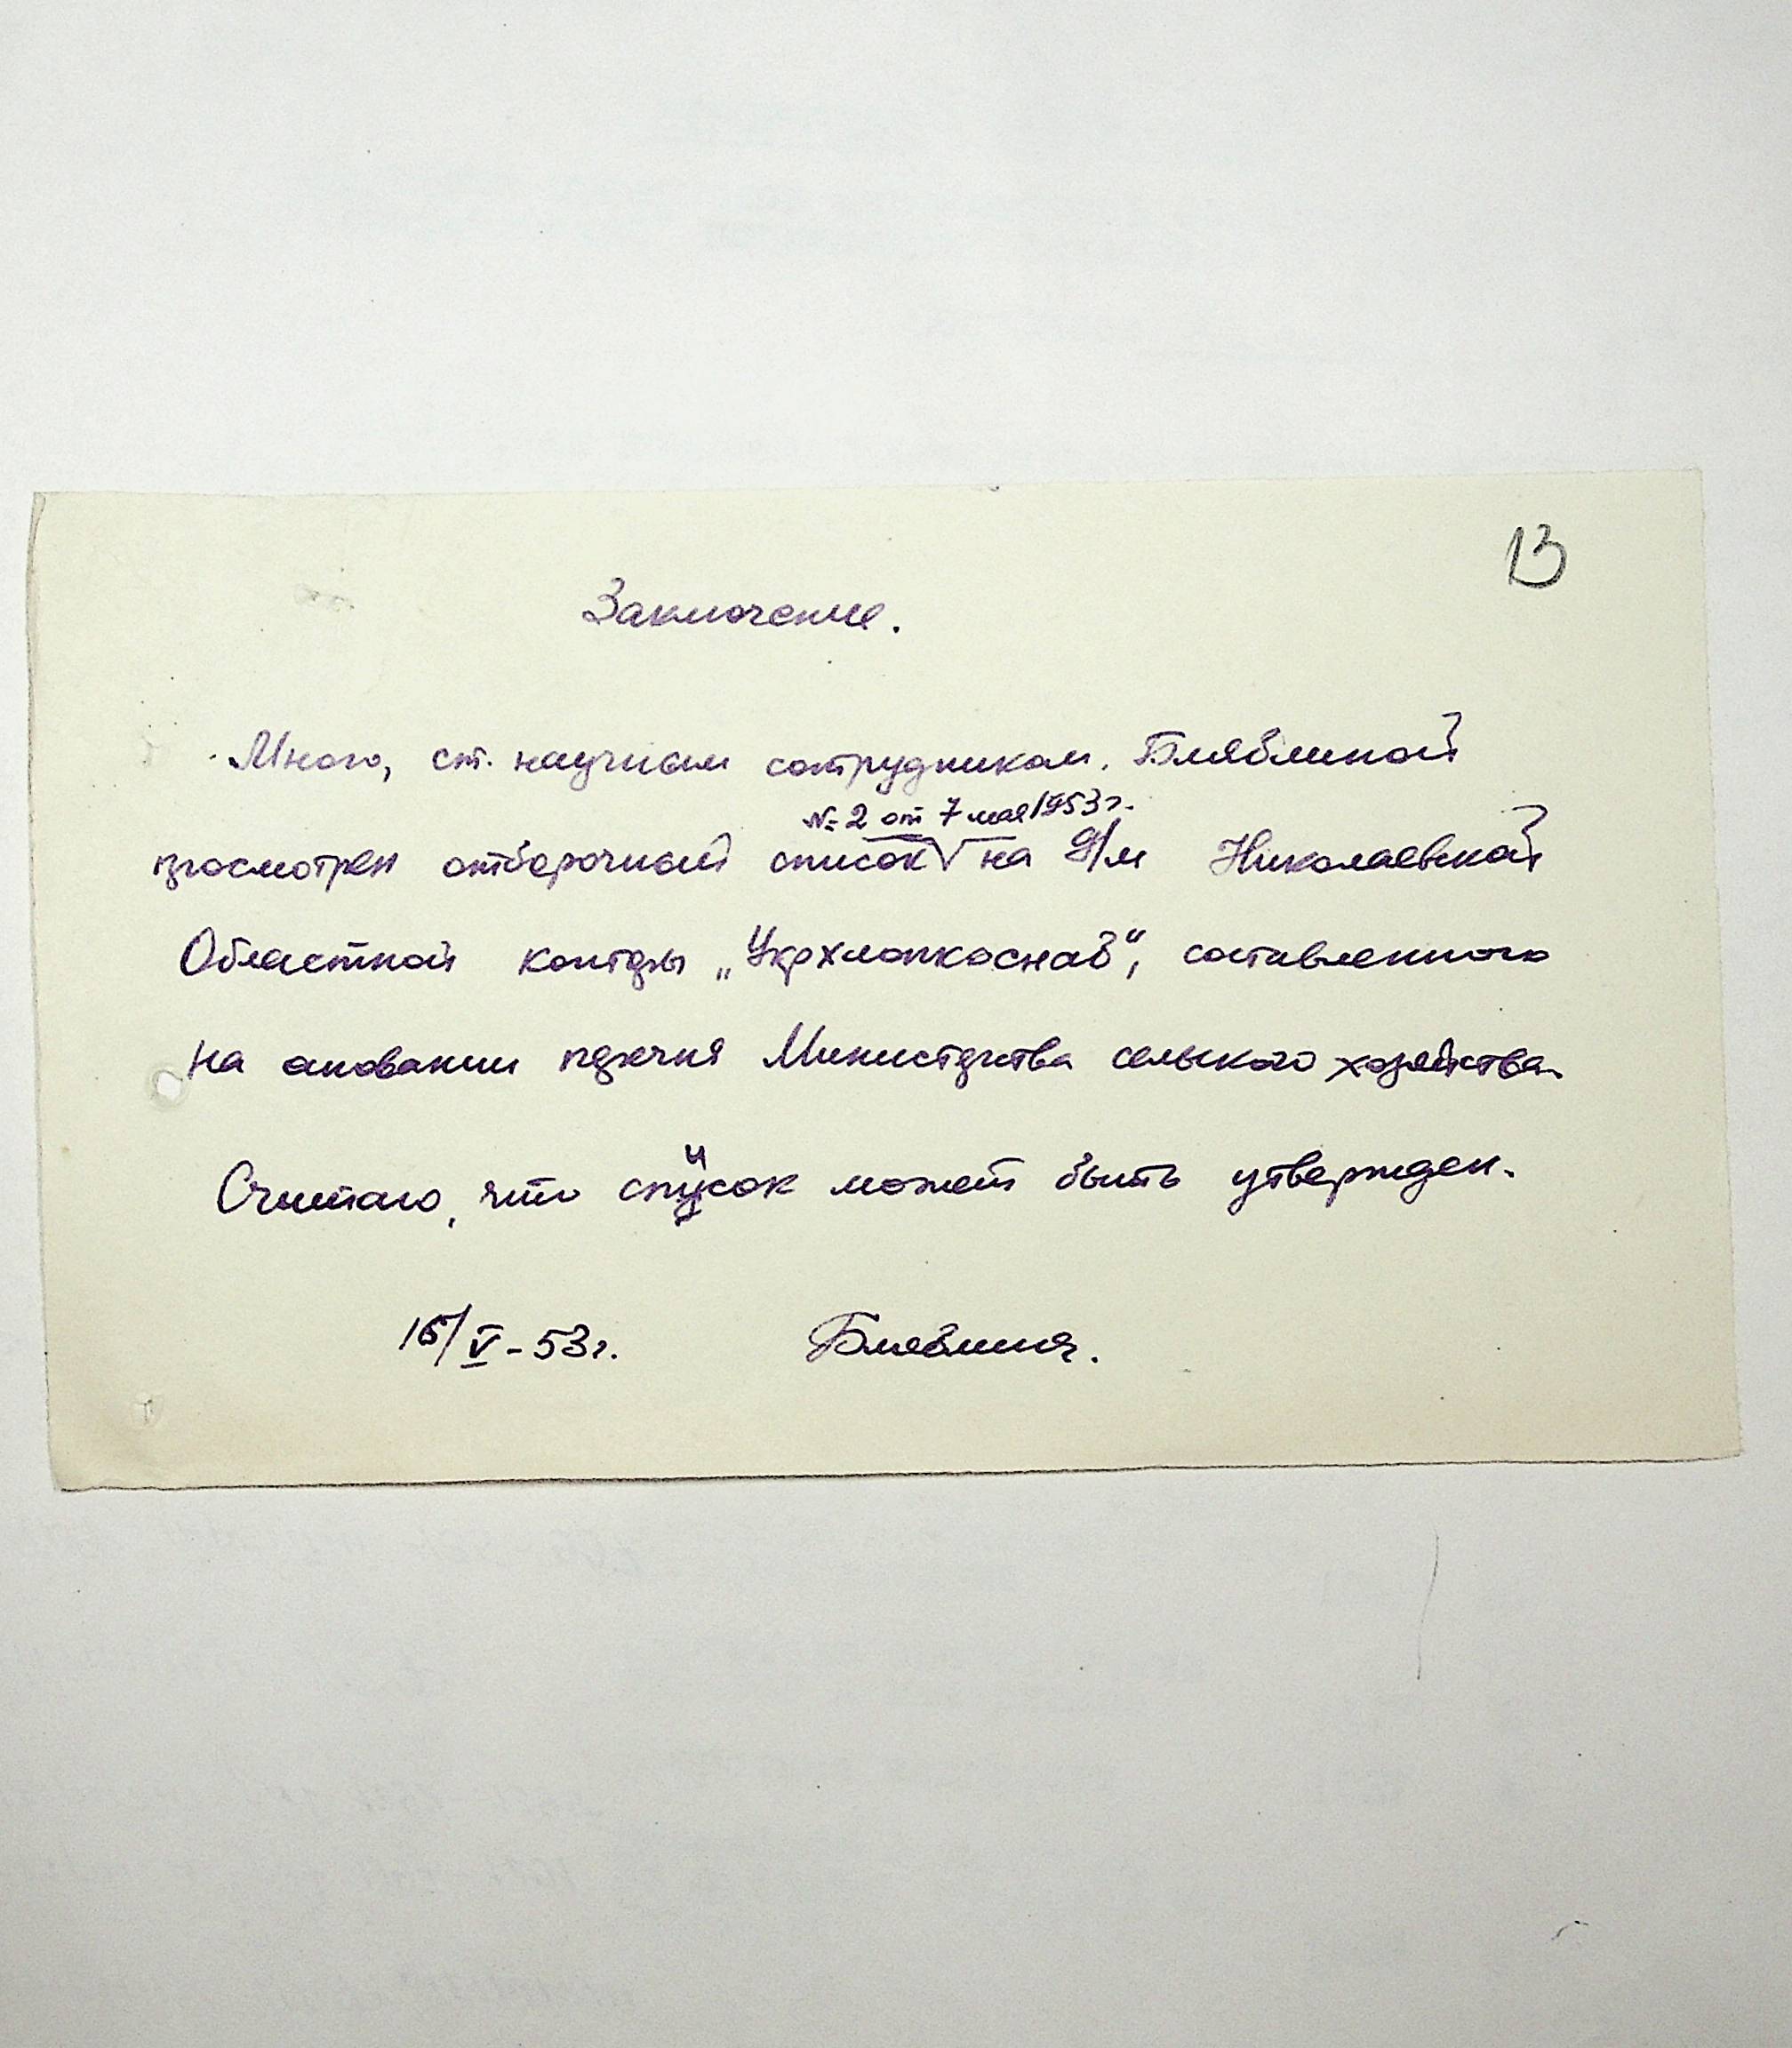 13
Заключение.
Мною, ст. научным сотрудником, Бляблиной
№ 2 от 7 мая 1953 г.
просмотрен отборочный список на д/м Николаевской
Областной конторы „Укрхлопкоснаб", составленного
на основании перечня Министерства сельского хозяйства.
Считаю, что список может быть утвержден.
15/V-53 г.